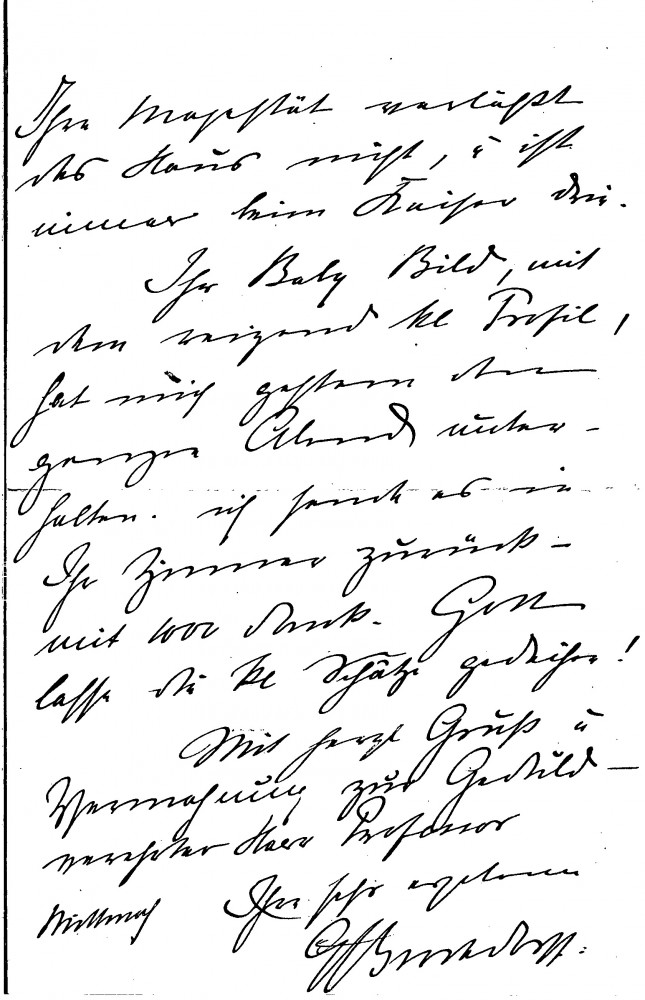 Ihre Majestät verläßt
das Haus nicht, u ist
immer beim Kaiser drin.
Ihr Baby Bild, mit
dem reizend kl Profil,
hat mich gestern den
ganzen Abend unter-
halten. ich sende es in
Ihr Zimmer zurück -
mit 1000 Dank. Gott
lasse die kl Schätze gedeihen!
Mit herzl Gruß u
Vermahnung zur Geduld -
verehrter Herr Professor
Mittwoch Ihre sehr ergebene